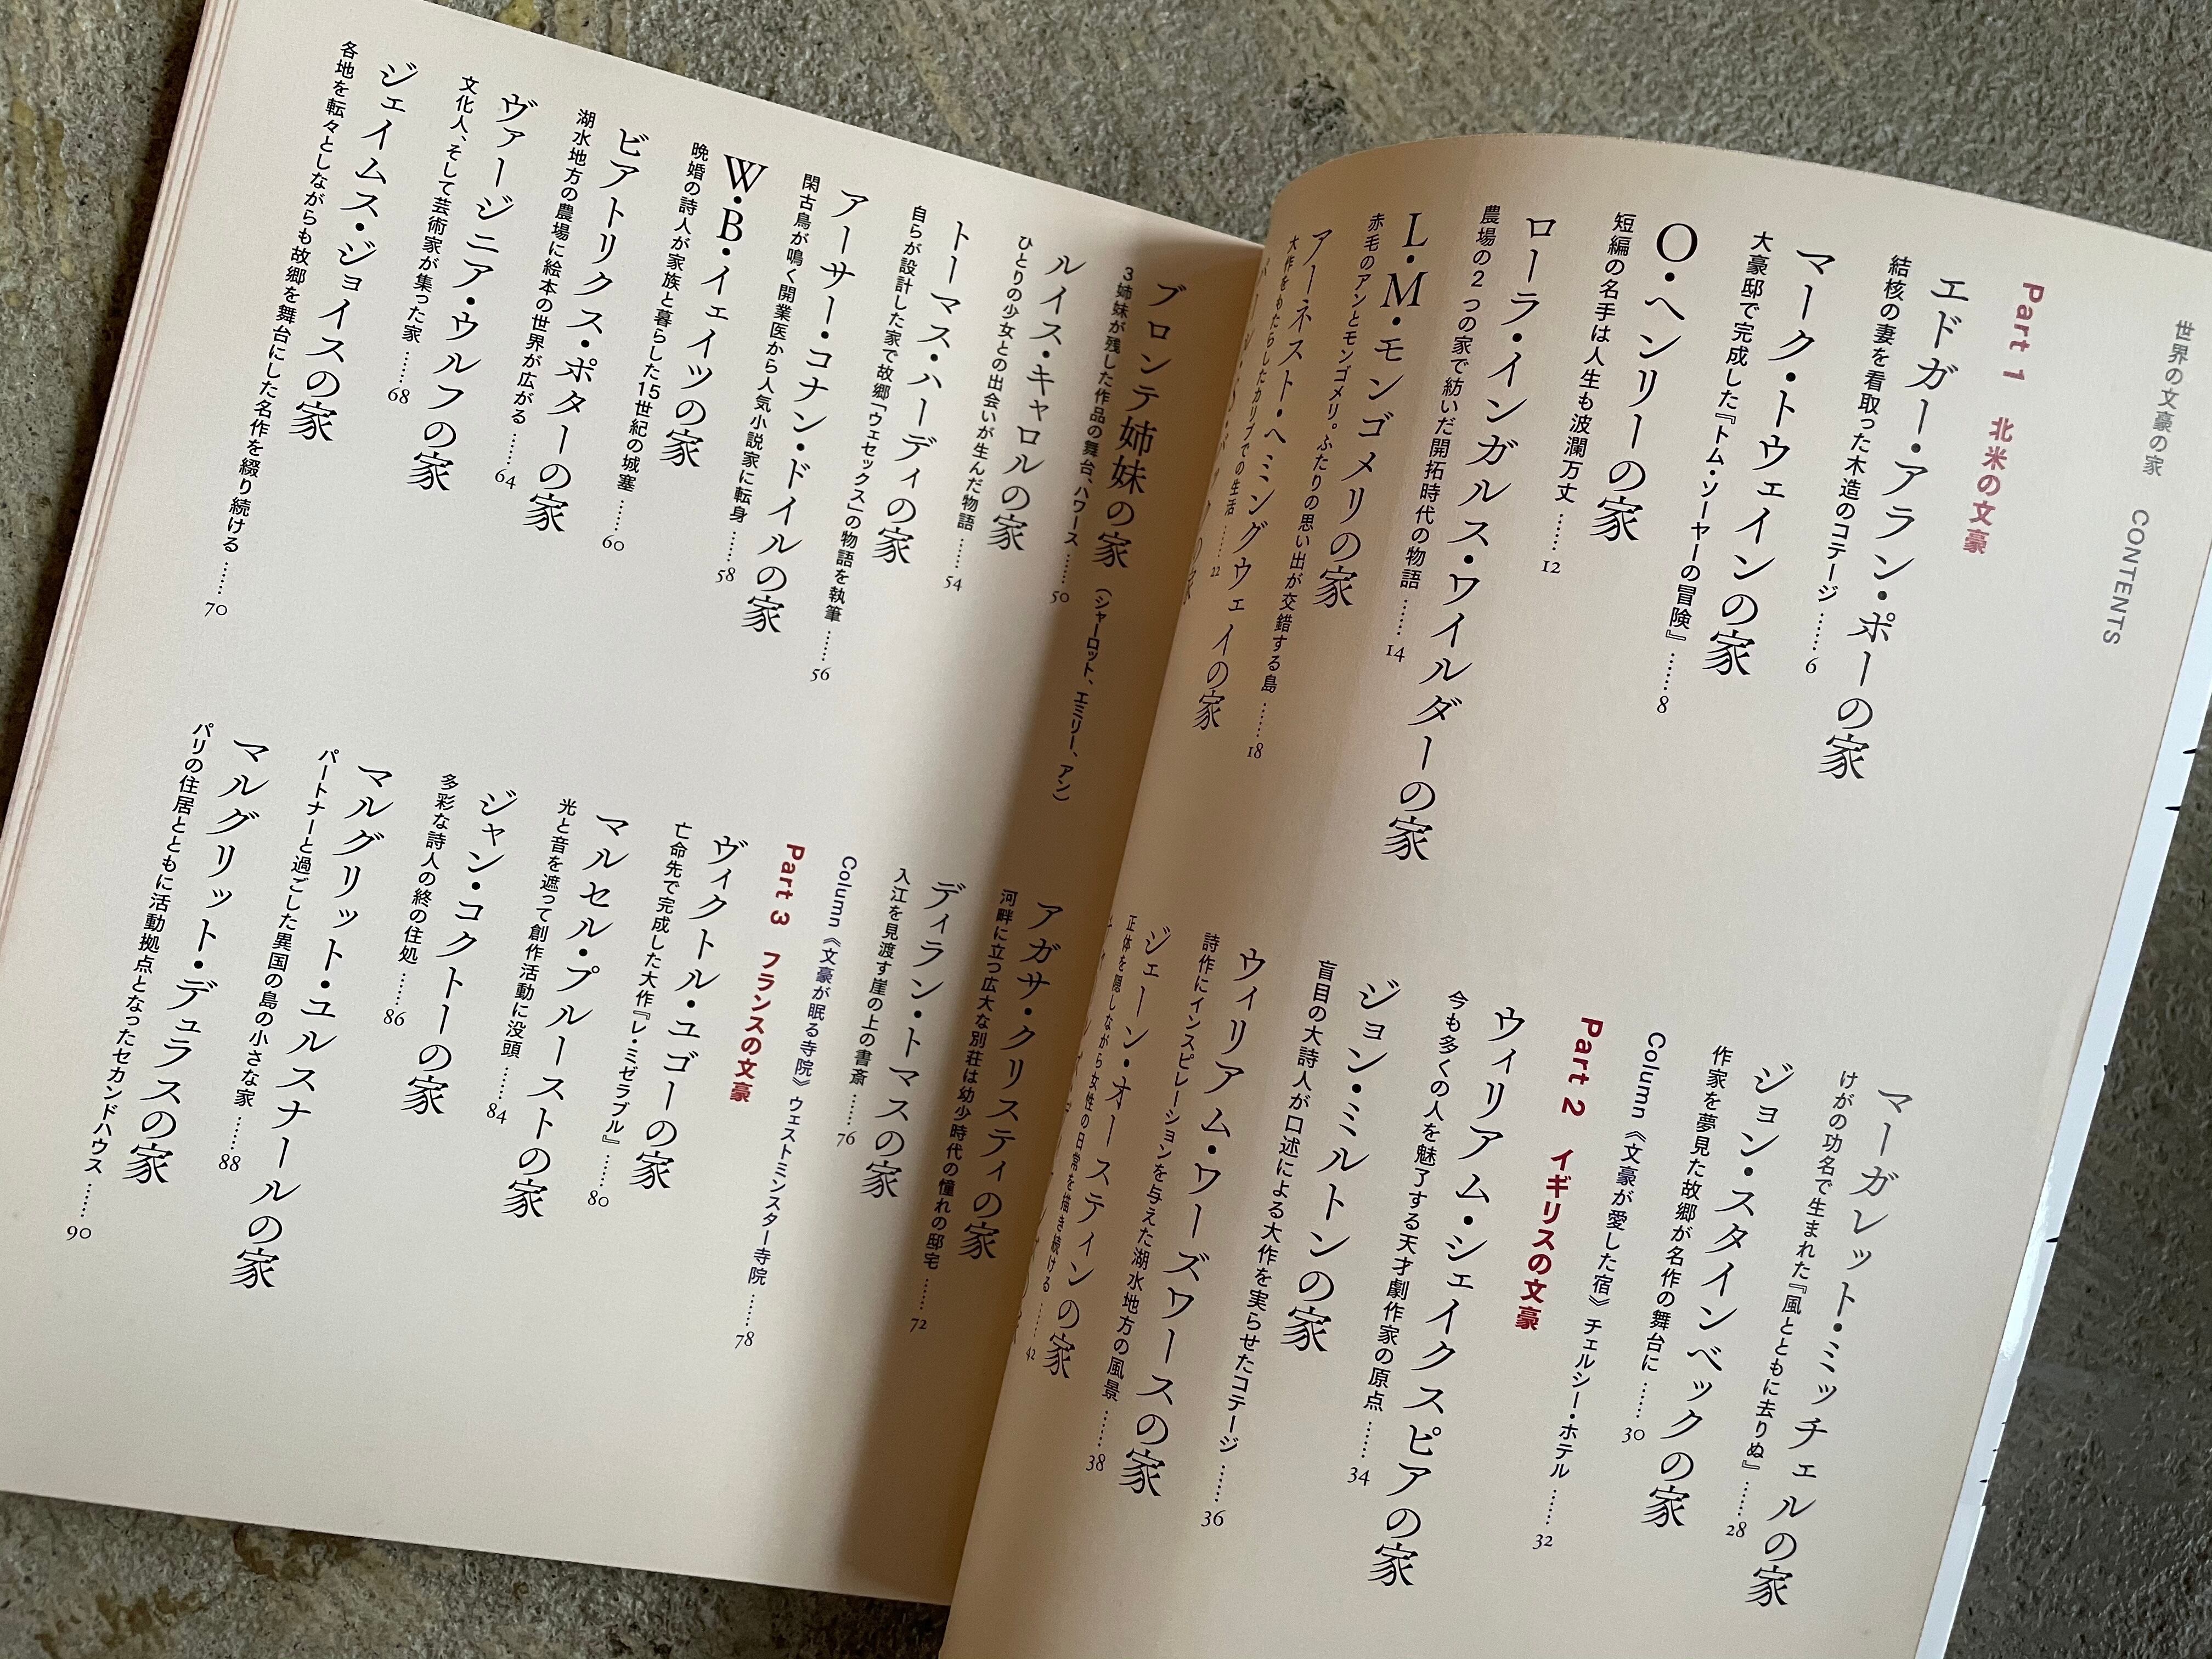 世界の文豪の家 CONTENTS
Part 1 北米の文豪
エドガー・アラン・ポーの家
結核の妻を看取った木造のコテージ ……6
マーク・トウェインの家
大豪邸で完成した『トム・ソーヤーの冒険』……8
O・ヘンリーの家
短編の名手は人生も波瀾万丈 ……12
ローラ・インガルス・ワイルダーの家
農場の2つの家で紡いだ開拓時代の物語 ……14
L・M・モンゴメリの家
赤毛のアンとモンゴメリ。ふたりの思い出が交錯する島 ……18
アーネスト・ヘミングウェイの家
大作をもたらしたカリブでの生活 ……22
マーガレット・ミッチェルの家
けがの功名で生まれた『風とともに去りぬ』……28
ジョン・スタインベックの家
作家を夢見た故郷が名作の舞台に ……30
Column《文豪が愛した宿》チェルシー・ホテル ……32
Part 2 イギリスの文豪
ウィリアム・シェイクスピアの家
今も多くの人を魅了する天才劇作家の原点 ……34
ジョン・ミルトンの家
盲目の大詩人が口述による大作を実らせたコテージ ……36
ウィリアム・ワーズワースの家
詩作にインスピレーションを与えた湖水地方の風景 ……38
ジェーン・オースティンの家
正体を隠しながら女性の日常を描き続ける ……42
ブロンテ姉妹の家(シャーロット、エミリー、アン)
3姉妹が残した作品の舞台、ハワース ……50
ルイス・キャロルの家
ひとりの少女との出会いが生んだ物語 ……54
トーマス・ハーディの家
自らが設計した家で故郷「ウェセックス」の物語を執筆 ……56
アーサー・コナン・ドイルの家
閑古鳥が鳴く開業医から人気小説家に転身 ……58
W・B・イェイツの家
晩婚の詩人が家族と暮らした15世紀の城塞 ……60
ビアトリクス・ポターの家
湖水地方の農場に絵本の世界が広がる ……64
ヴァージニア・ウルフの家
文化人、そして芸術家が集った家 ……68
ジェイムス・ジョイスの家
各地を転々としながらも故郷を舞台にした名作を綴り続ける ……70
アガサ・クリスティの家
河畔に立つ広大な別荘は幼少時代の憧れの邸宅 ……72
ディラン・トマスの家
入江を見渡す崖の上の書斎 ……76
Column《文豪が眠る寺院》ウェストミンスター寺院 ……78
Part 3 フランスの文豪
ヴィクトル・ユゴーの家
亡命先で完成した大作『レ・ミゼラブル』……80
マルセル・プルーストの家
光と音を遮って創作活動に没頭 ……84
ジャン・コクトーの家
多彩な詩人の終の住処 ……86
マルグリット・ユルスナールの家
パートナーと過ごした異国の島の小さな家 ……88
マルグリット・デュラスの家
パリの住居とともに活動拠点となったセカンドハウス ……90